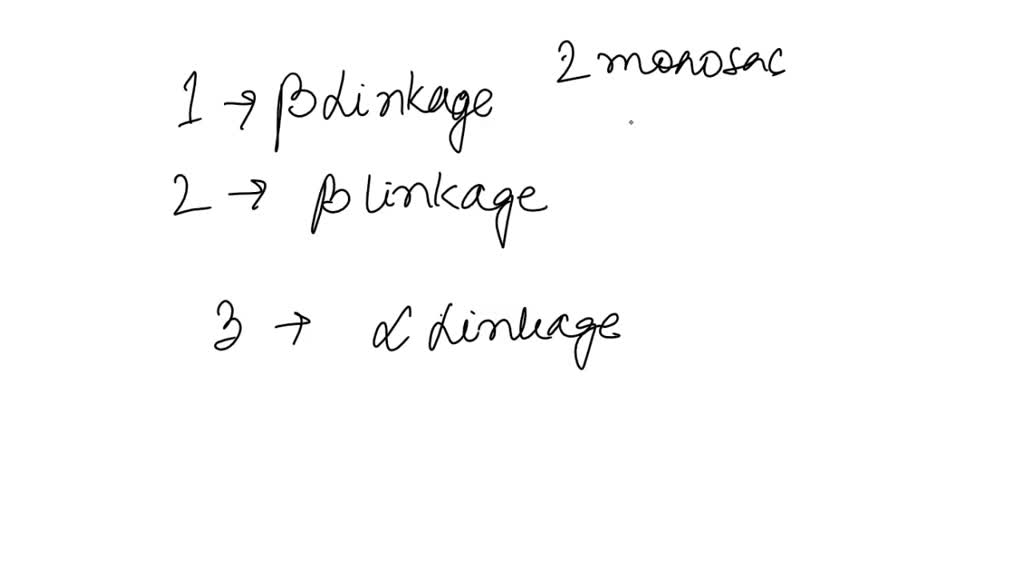 2 monosac
1 → β Linkage
2 → β linkage
3 → α Linkage